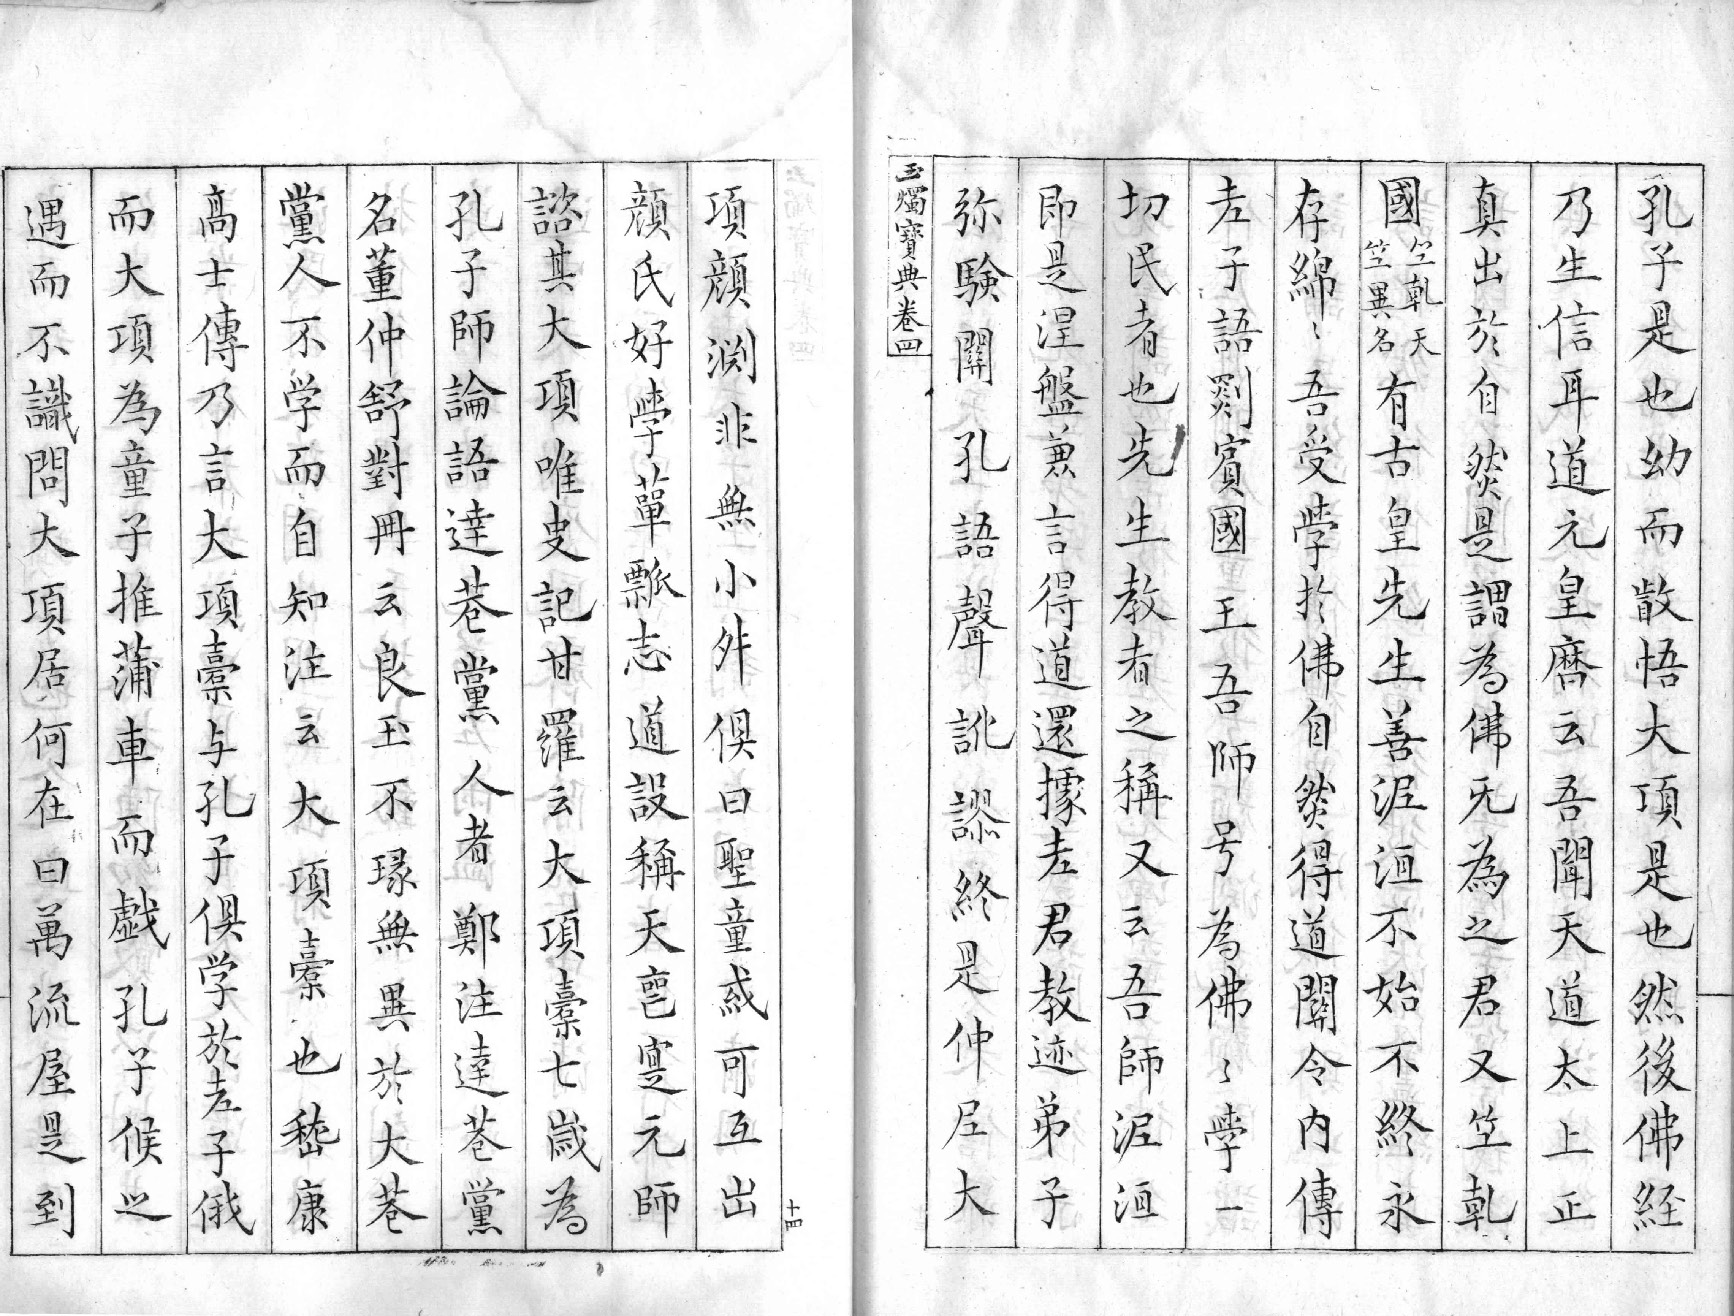 孔子是也幼而散悟大項是也然後佛経
乃生信耳道元皇暦云吾聞天道太上正
真出於自然是謂為佛无為之君又竺乹
國竺乹天竺異名有古皇先生善泥洹不始不終永
存綿〻吾受學於佛自然得道關令内傳
老子語罽賓國王吾師号為佛〻學一
切民者也先生教者之稱又云吾師泥洹
即是涅盤兼言得道還據老君教迹弟子
弥験關孔語聲訛謬終是仲尼大
玉燭寶典卷四
項顔渕非無小舛俱曰聖童或可互出
顔氏好學簞瓢志道設稱天寔元師
諮其大項唯史記甘羅云大項橐七歳為
孔子師論語達巷黨人者鄭注達巷黨
名董仲舒對冊云良玉不瑑無異於大巷
黨人不学而自知注云大項橐也嵇康
高士傳乃言大項橐与孔子俱学於老子俄
而大項為童子推蒲車而戯孔子候之
遇而不識問大項居何在曰萬流屋是到
十四